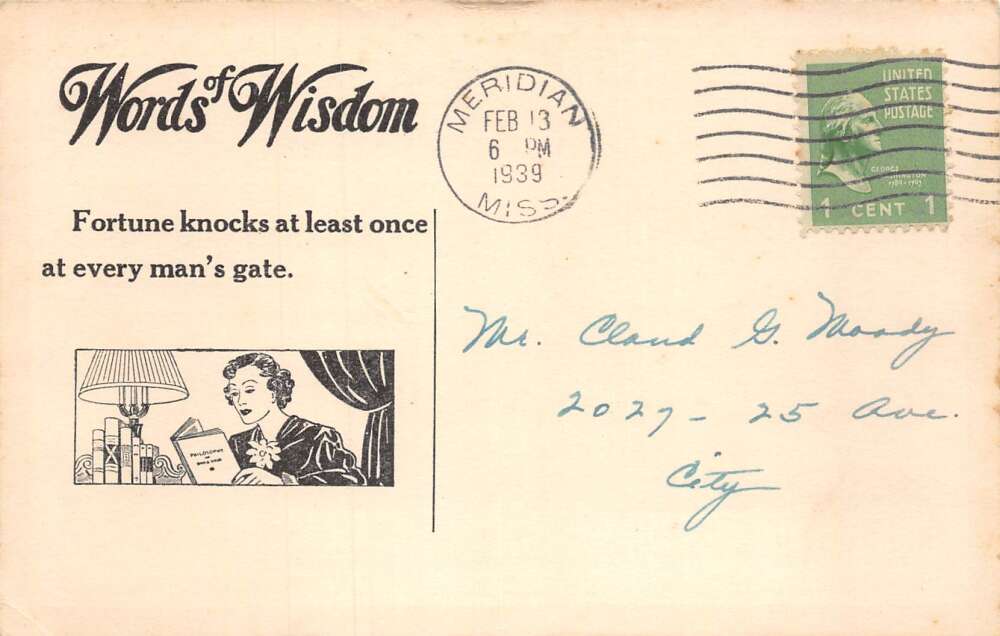 Words of Wisdom
Fortune knocks at least once
at every man's gate.
PHILOSOPHY
MERIDIAN
FEB 13
6 PM
1939
MISS.
UNITED
STATES
POSTAGE
GEORGE
WASHINGTON
1789-1797
1 CENT 1
Mr. Claud G. Moody
2027 - 25 Ave.
City